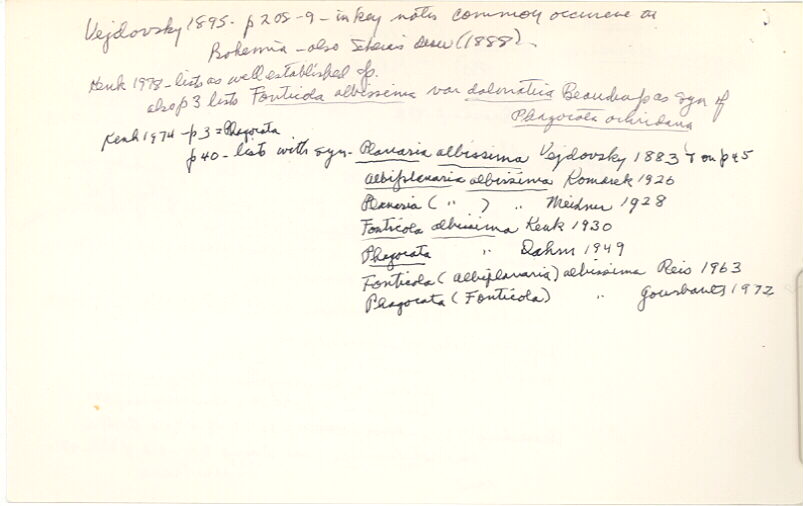 Vejdovsky 1895 - p 208-9 - in key notes common occurence in
Bohemia - also (1888).
Kenk 1978 - lists as well established sp.
also p 3 lists Fonticola albissima var dalmatica Beauchamp as syn of
Phagocata ochridana
Kenk 1974 - p 3 = Phagocata
p 40 - lists with syn - Planaria albissima Vejdovsky 1883 & on p 45
Albiplanaria albissima Komarek 1926
Planaria ( " ) " Meixner 1928
Fonticola albissima Kenk 1930
Phagocata " Dahm 1949
Fonticola (Albiplanaria) albissima Reis 1963
Phagocata (Fonticola) " Gourbault 1972